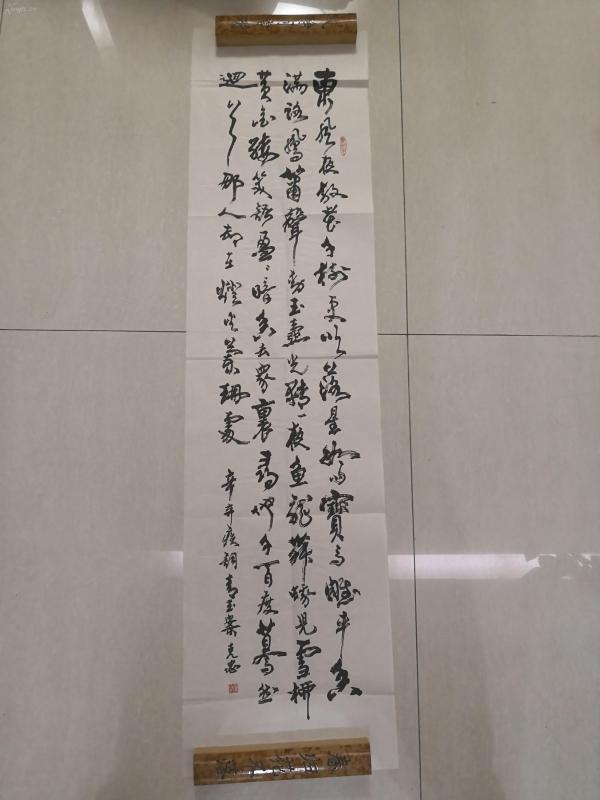 東風夜放花千樹更吹落星如雨寶馬雕車香
滿路鳳簫聲動玉壺光轉一夜魚龍舞蛾兒雪柳
黃金縷笑語盈盈暗香去眾裏尋他千百度驀然
迴首那人卻在燈火闌珊處
辛棄疾詞青玉案 克忠